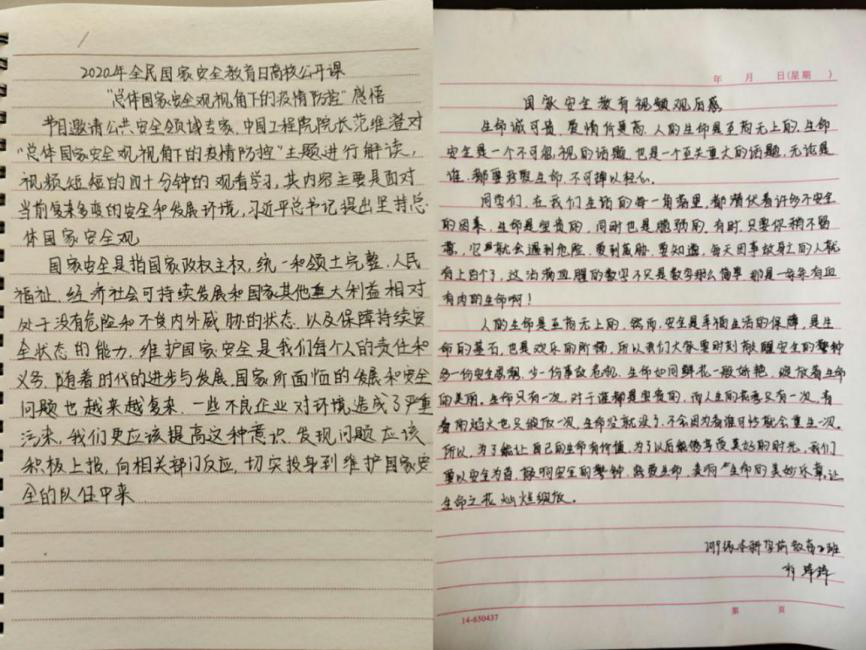 2020年全民国家安全教育日高校公开课
“总体国家安全观视角下的疫情防控”感悟
节目邀请公共安全领域专家、中国工程院院长范维澄对
“总体国家安全观视角下的疫情防控”主题进行解读,
视频短短的四十分钟的观看学习,其内容主要是面对
当前复杂多变的安全和发展环境,习近平总书记提出坚持总
体国家安全观
国家安全是指国家政权主权、统一和领土完整、人民
福祉、经济社会可持续发展和国家其他重大利益相对
处于没有危险和不受内外威胁的状态,以及保障持续安
全状态的能力,维护国家安全是我们每个人的责任和
义务,随着时代的进步与发展,国家所面临的发展和安全
问题也越来越复杂,一些不良企业对环境造成了严重
污染,我们更应该提高这种意识,发现问题应该
积极上报,向相关部门反应,切实投身到维护国家安
全的队伍中来
年 月 日(星期 )
国家安全教育视频观后感
生命诚可贵,爱情价更高,人的生命是至高无上的,生命
安全是一个不可忽视的话题,也是一个至关重大的话题,无论是
谁,都要珍爱生命,不可掉以轻心。
同学们,在我们生活的每一角落里,都潜伏着许多不安全
的因素,生命是宝贵的,同时也是脆弱的,有时,只要你稍不留
意,它就会遇到危险,受到威胁,要知道,每天因事故身亡的人就
有上百个了,这沾满血腥的数字不只是数字那么简单,那是一条条有血
有肉的生命啊!
人的生命是至高无上的,然而,安全是幸福生活的保障,是生
命的基石,也是欢乐的阶梯,所以我们大家要时刻敲醒安全的警钟
多一份安全意识,少一份事故危机,生命如同鲜花一般娇艳,绽放着生命
的美丽,生命只有一次,对于谁都是宝贵的,而人生的花季只有一次,青
春的焰火也只绽放一次,生命没就没了,不会因为看谁可怜就会重生一次。
所以,为了能让自己的生命有价值,为了以后能够享受美好的时光,我们
要以安全为首,敲响安全的警钟,珍爱生命,奏响生命的美妙乐章,让
生命之花灿烂绽放。
19级本科学前教育2班
14-650437
第 页